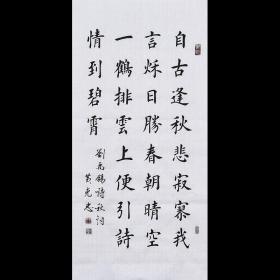 自古逢秋悲寂寥我
言秌日勝春朝晴空
一鶴排雲上便引詩
情到碧霄
劉禹錫詩秋詞
黃克忠